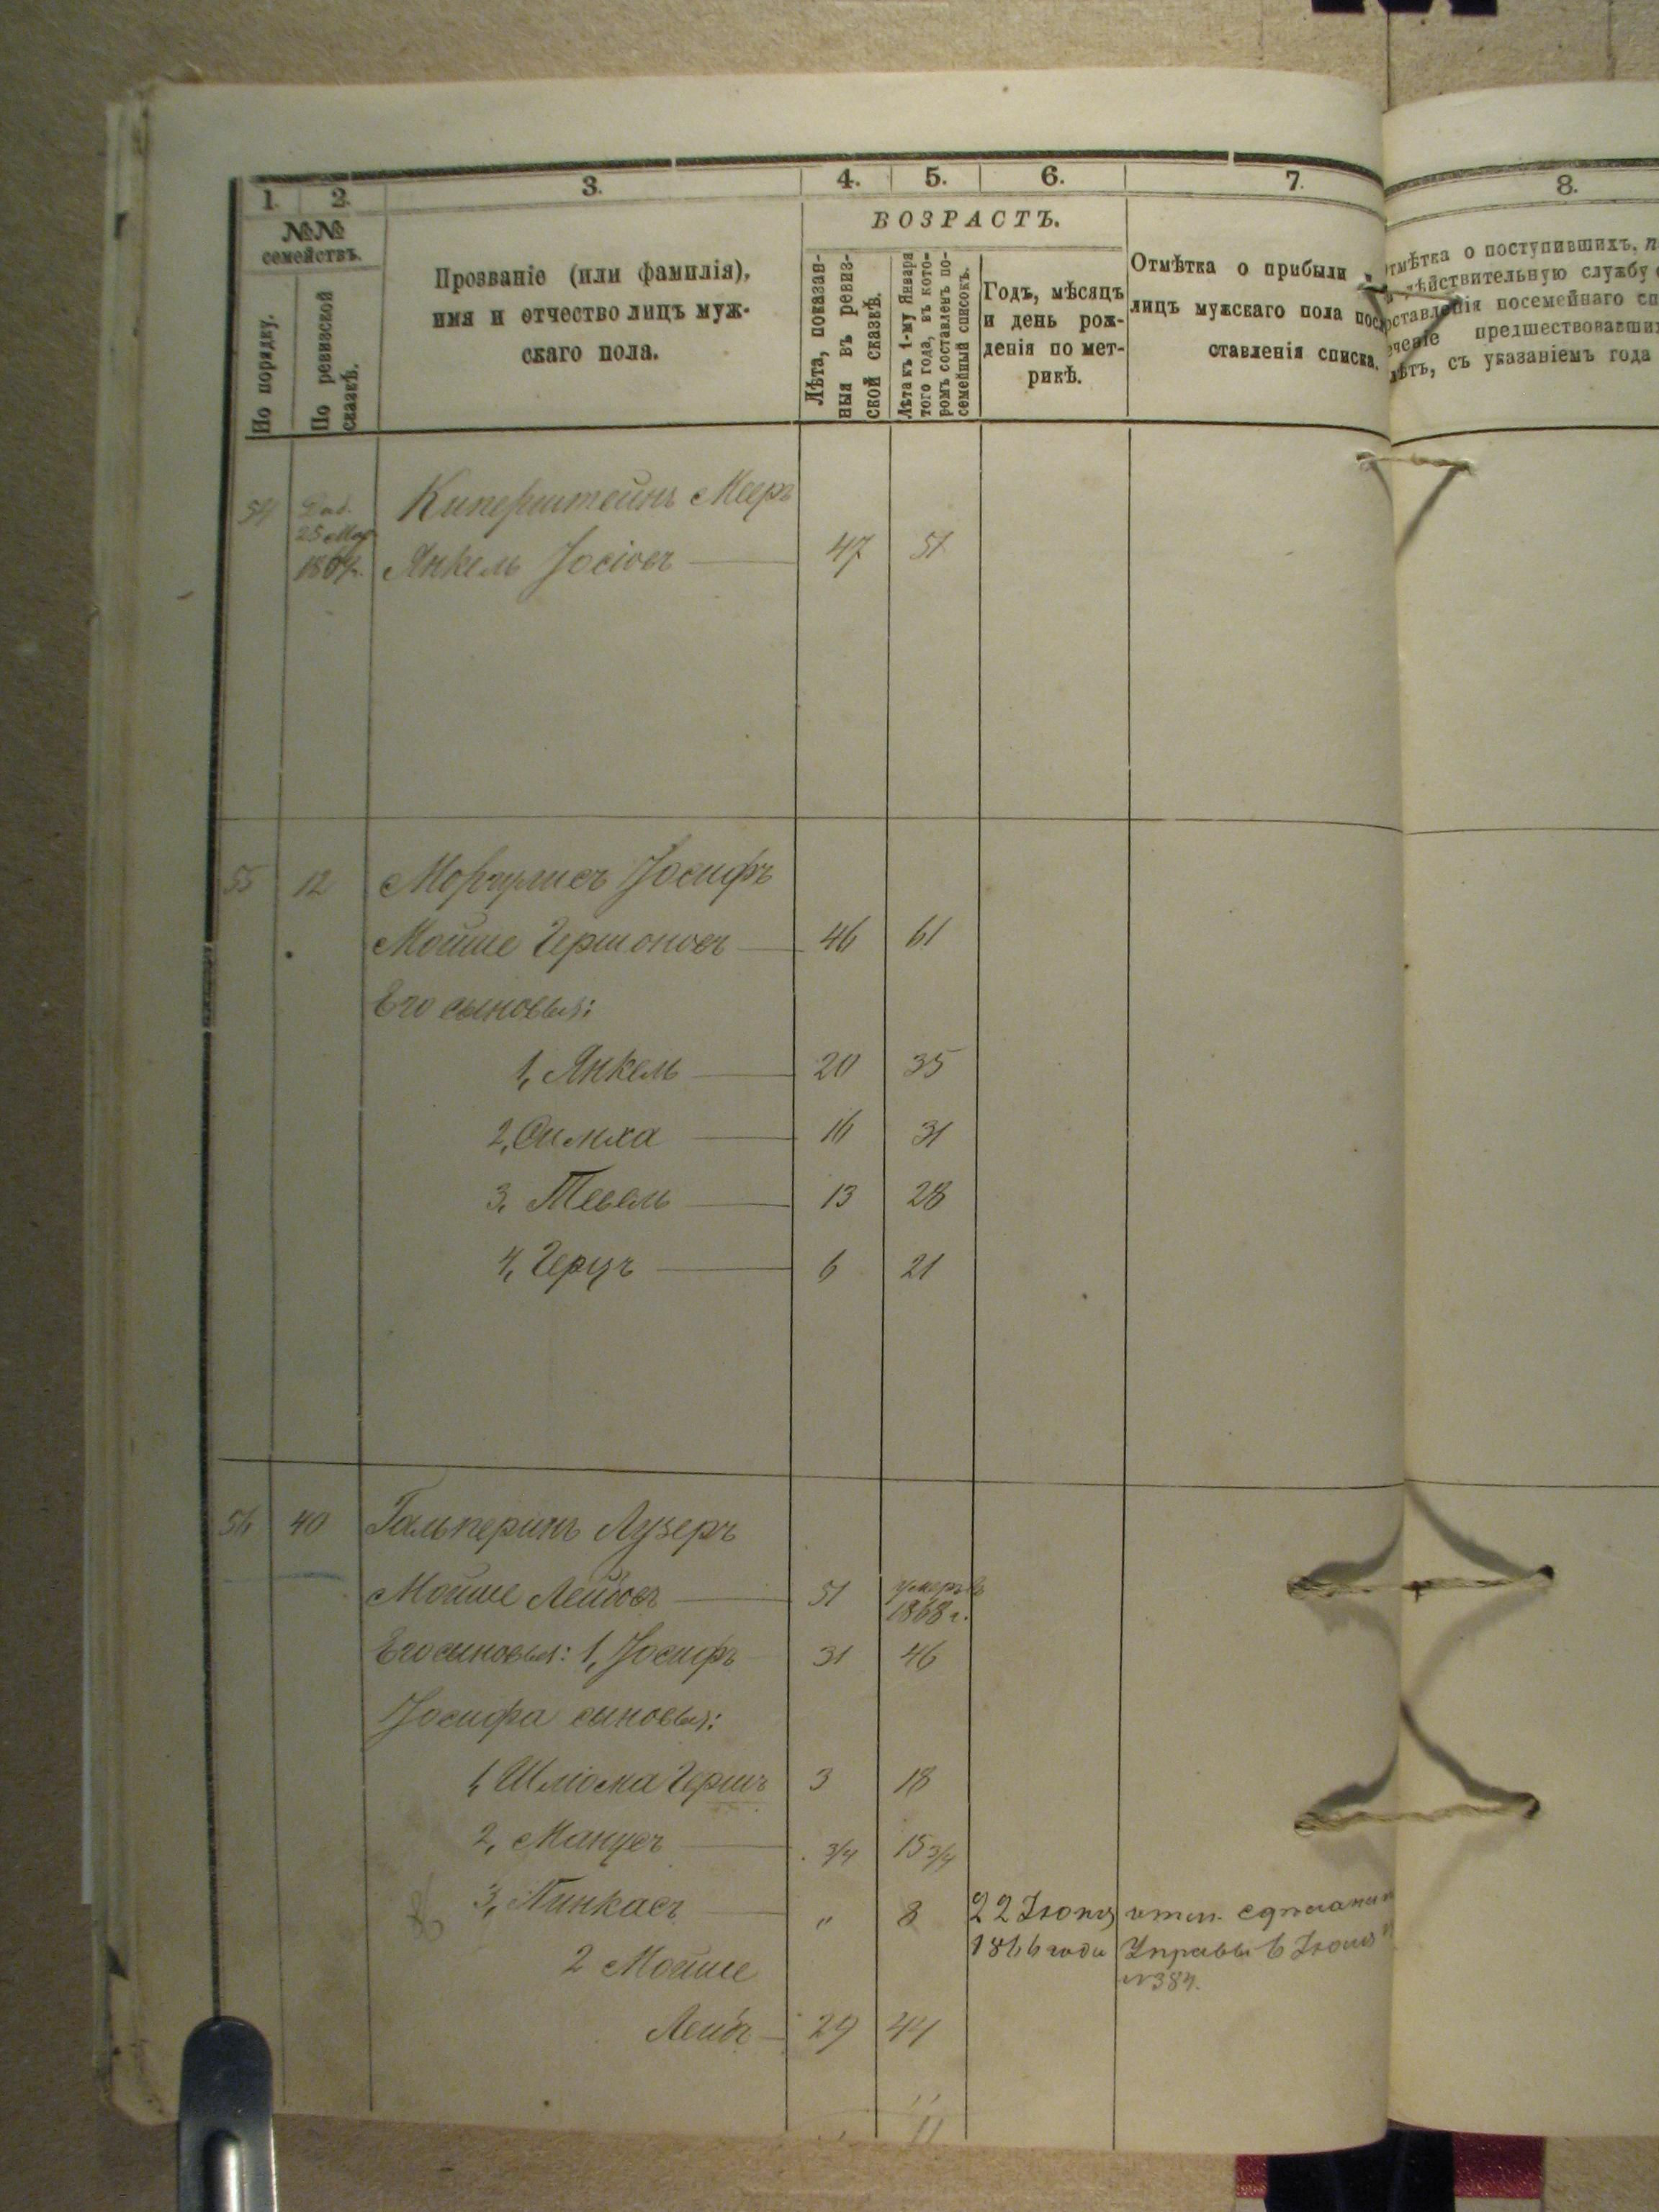 1. 2. 3. 4. 5. 6. 7. 8.
№№ семействъ.
По порядку.
По ревизской сказкѣ.
Прозваніе (или фамилія),
имя и отчество лицъ муж-
скаго пола.
ВОЗРАСТЪ.
Лѣта, показан-
ныя въ ревиз-
ской сказкѣ.
Лѣта къ 1-му Января
того года, въ кото-
ромъ составленъ по-
семейный списокъ.
Годъ, мѣсяцъ
и день рож-
денія по мет-
рикѣ.
Отмѣтка о прибыли
лицъ мужскаго пола пос
ставленія списка.
отмѣтка о поступившихъ, п
дѣйствительную службу
оставленія посемейнаго сп
еченіе предшествовавших
лѣтъ, съ указаніемъ года
54 Киперштейнъ Мееръ
25 Мар
Янкель Іосіовъ 47 51
55 12 Моргулисъ Іосифъ
Мойше Гершоновъ 46 61
Его сыновья:
1, Янкель 20 35
2, Симха 16 31
3, Тевель 13 28
4, Герцъ 6 21
56 40 Гальперинъ Лузеръ
Мойше Лейбовъ 51 умеръ въ 1868 г.
Его сыновья: 1, Іосифъ 31 46
Іосифа сыновья:
1, Шліома Гершъ 3 18
2, Манусъ 3/4 15 3/4
3, Пинкасъ " 8 22 Іюня
1866 года Управы 6 Іюня
№384.
2 Мойше
Лейбъ 29 44